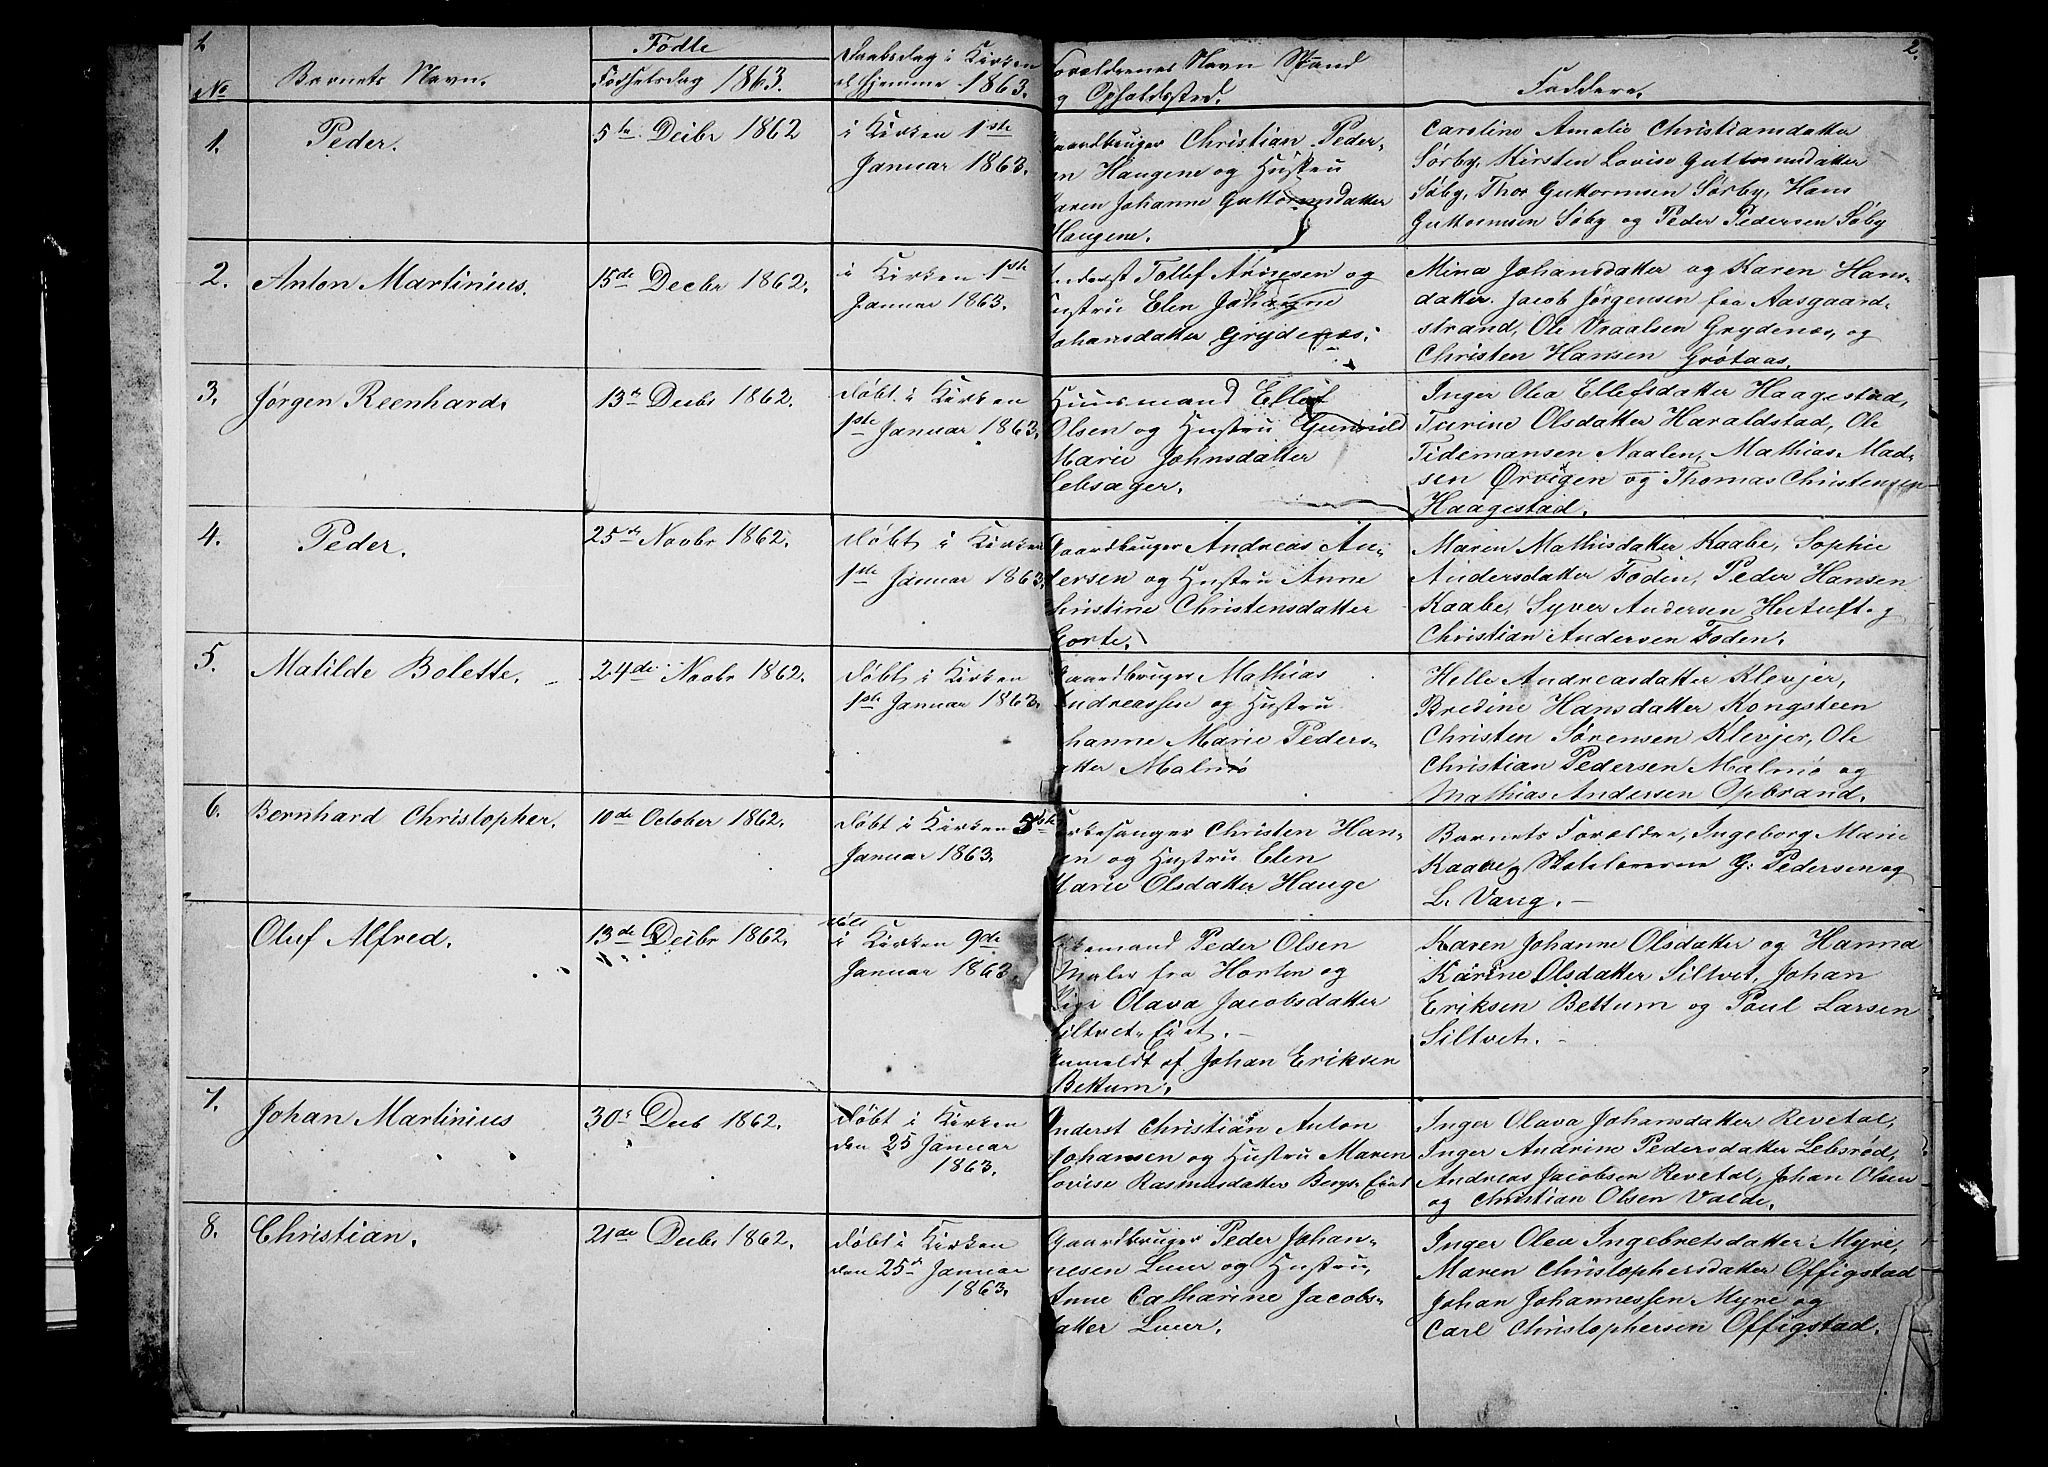 2
2.
Fødte
No
Barnets Navn.
Fødselsdag 1863.
Daabsdag i Kirken
el Hjemme 1863.
Forældrenes Navn Stand
og Opholdssted.
Faddere.
1.
Peder.
5te Decbr 1862
i Kirken 1ste
Januar 1863.
Gaardbruger Christian Peder-
sen Haugene og Hustru
Karen Johanne Guttormsdatter
Haugene.
Caroline Amalie Christiansdatter
Sørby, Kirsten Lovise Guttormsdatter
Søby, Thor Guttormsen Sørby, Hans
Guttormsen Søby og Peder Pedersen Søby
2.
Anton Martinius.
15de Decbr 1862.
i Kirken 1ste
Januar 1863.
Inderst Tollef Andresen og
Hustru Elen Johanne
Johansdatter Grydenæs.
Mina Johansdatter og Karen Hans-
datter. Jacob Jørgensen fra Aasgaard-
strand, Ole Vraalsen Grydenæs, og
Christen Hansen Grøtaas.
3.
Jørgen Reenhard.
13de Decbr 1862.
Døbt i Kirken
1ste Januar 1863.
Huusmand Ellef
Olsen og Hustru Gunnild
Marie Johnsdatter
Lebsager.
Inger Olea Ellefsdatter Haagestad,
Turine Olsdatter Haraldstad, Ole
Tidemansen Naalen, Mathias Mad-
sen Ørvigen og Thomas Christensen
Haagestad.
4.
Peder.
25de Novbr 1862.
Døbt i Kirken
1ste Januar 1863.
Gaardbruger Andreas An-
dersen og Hustru Anne
Christine Christensdatter
Gorte.
Maren Mathisdatter Kaabe, Sophie
Andersdatter Foden, Peder Hansen
Kaabe, Syver Andersen Hutuft og
Christian Andersen Foden.
5.
Matilde Bolette.
24de Novbr 1862.
Døbt i Kirken
1ste Januar 1863.
Gaardbruger Mathias
Andreassen og Hustru
Johanne Marie Peders-
datter Malmø
Helle Andreasdatter Klevjer,
Bredine Hansdatter Kongsteen
Christen Sørensen Klevjer, Ole
Christian Pedersen Malmø og
Mathias Andersen Opbrand.
6.
Bernhard Christopher.
10de October 1862.
Døbt i Kirken 5te
Januar 1863.
Kirkesanger Christen Han-
sen og Hustru Elen
Marie Olsdatter Hauge
Barnets Forældre, Ingeborg Marie
Kaabe, Skolelærerne G. Pedersen og
L. Vang.
Oluf Alfred.
13de Decbr 1862.
Døbt
i Kirken 9de
Januar 1863.
Peder Olsen
Maler fra Horten og
Pige Olava Jacobsdatter
Siltvet Eiet.
Anmeldt af Johan Eriksen
Bettum.
Karen Johanne Olsdatter og Hanna
Karine Olsdatter Siltvet, Johan
Eriksen Bettum og Poul Larsen
Siltvet.
7.
Johan Martinius
30te Decb 1862.
Døbt i Kirken
den 25 Januar
1863.
Inderst Christian Anton
Johansen og Hustru Maren
Lovise Rasmusdatter Bergs Eiet
Inger Olava Johansdatter Revetal,
Inger Andrine Pedersdatter Lebsrød,
Andreas Jacobsen Revetal, Johan Olsen
og Christian Olsen Valde.
8.
Christian.
21de Decbr 1862.
Døbt i Kirken
den 25de Januar
1863.
Gaardbruger Peder Johan-
nesen Luer og Hustru,
Anne Catharine Jacobs-
datter Luer.
Inger Olea Ingebretsdatter Myre,
Maren Christophersdatter Offigstad
Johan Johannessen Myre og
Carl Christophersen Offigstad.